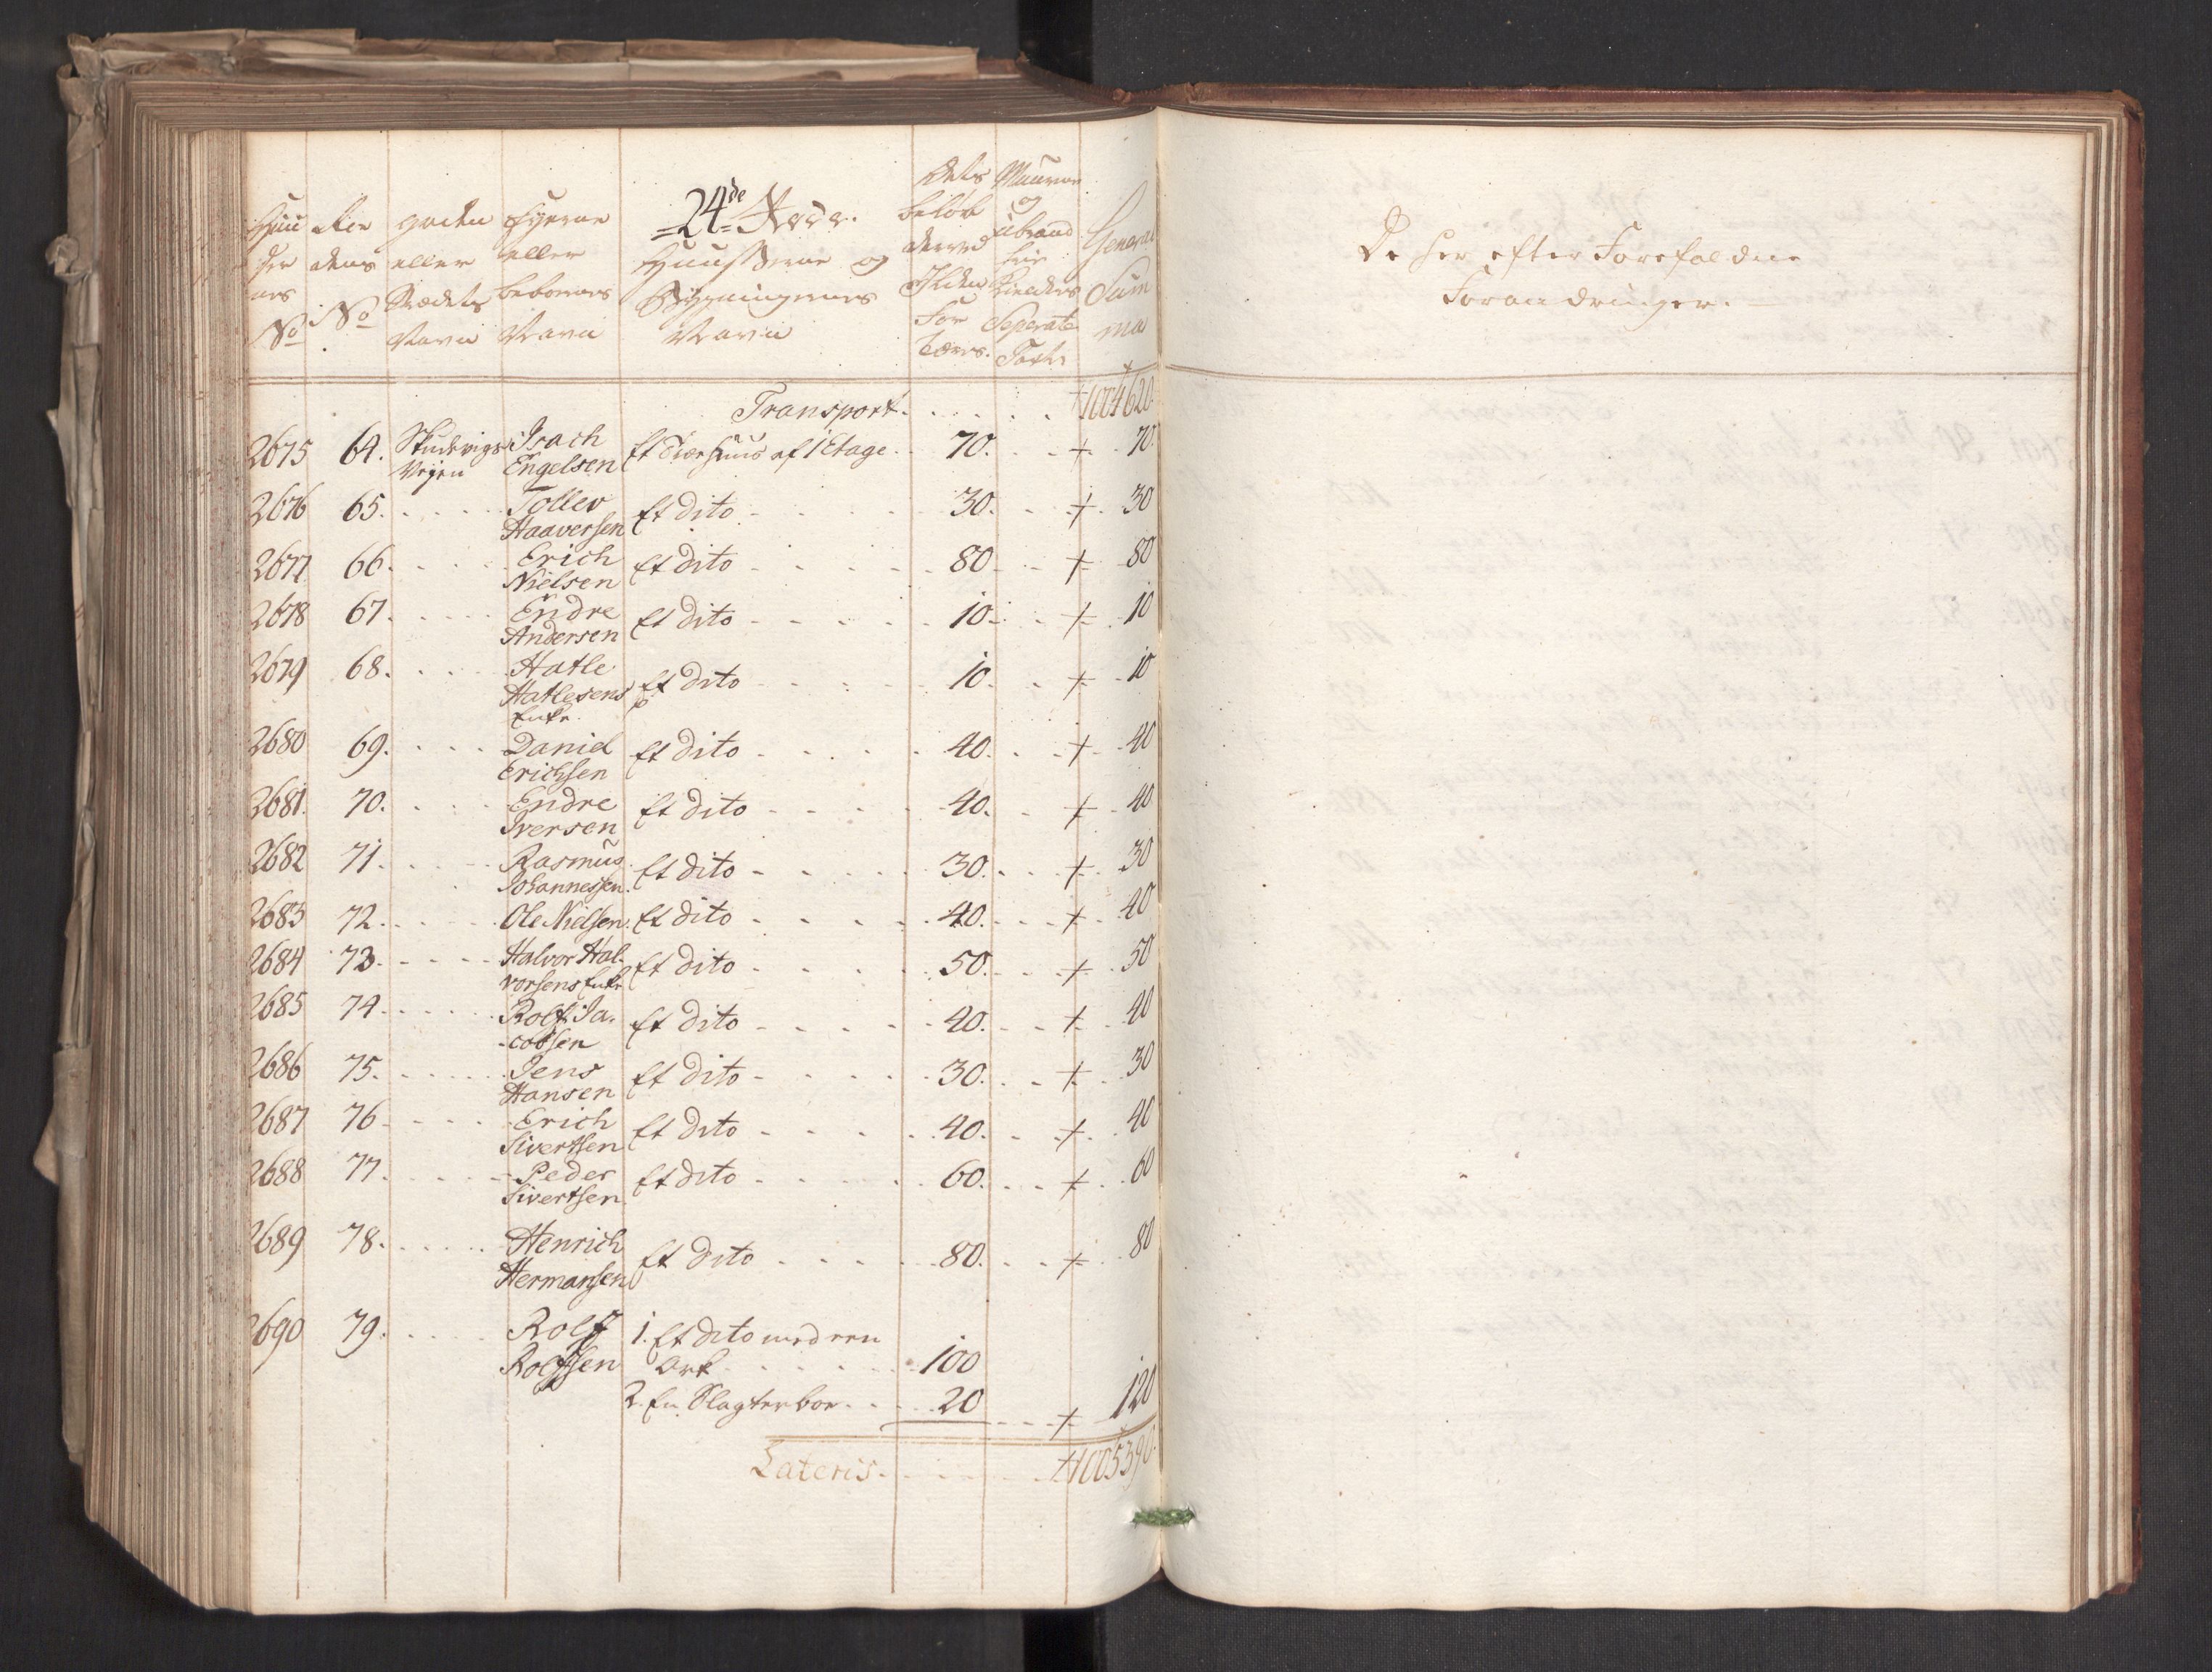 24de Rode.
Huu ser nes No
Ro dens No
gaden eller Strædets Navn
Eyerne eller beboernes Navn
Huusserne og Bygningernes Navn
Dets beløb derved Ilden For tæres.
Muurene og ubrand Seperate Taxt
General Sum ma
Transport. 1004620.
2675 64. Studevigs Vejen Isach Engelsen Et Træehuus af 1 Etage 70. 70.
2676 65. Tollev Haaversen Et dito 30. 30
2677 66. Erich Nielsen Et dito 80 80
2678 67. Endre Andersen Et dito 10 10
2679 68. Hatle Hatlesens Enke Et dito 10. 10
2680 69. Daniel Erichsen Et dito 40. 40
2681. 70. Endre Iversen Et dito 40. 40
2682 71. Rasmus Johannessen. Et dito 30. 30
2683 72. Ole Nielsen. Et dito 40. 40
2684 73. Halvor Hal- vorsens Enke Et dito 50. 50
2685 74. Rolf Ja- cobsen Et dito 40. 40
2686 75. Jens Hansen Et dito 30. 30
2687 76 Erich Sivertsen Et dito 40. 40
2688 77. Peder Sivertsen Et dito 60. 60
2689 78. Henrich Hermansen Et dito 80. 80
2690 79. Rolf Rolfsen 1. Et dito med een
Ark 100
2. En Slagterboe 20 120
Lateris. 1005390.
De her efter Forefaldne
Forandringer.